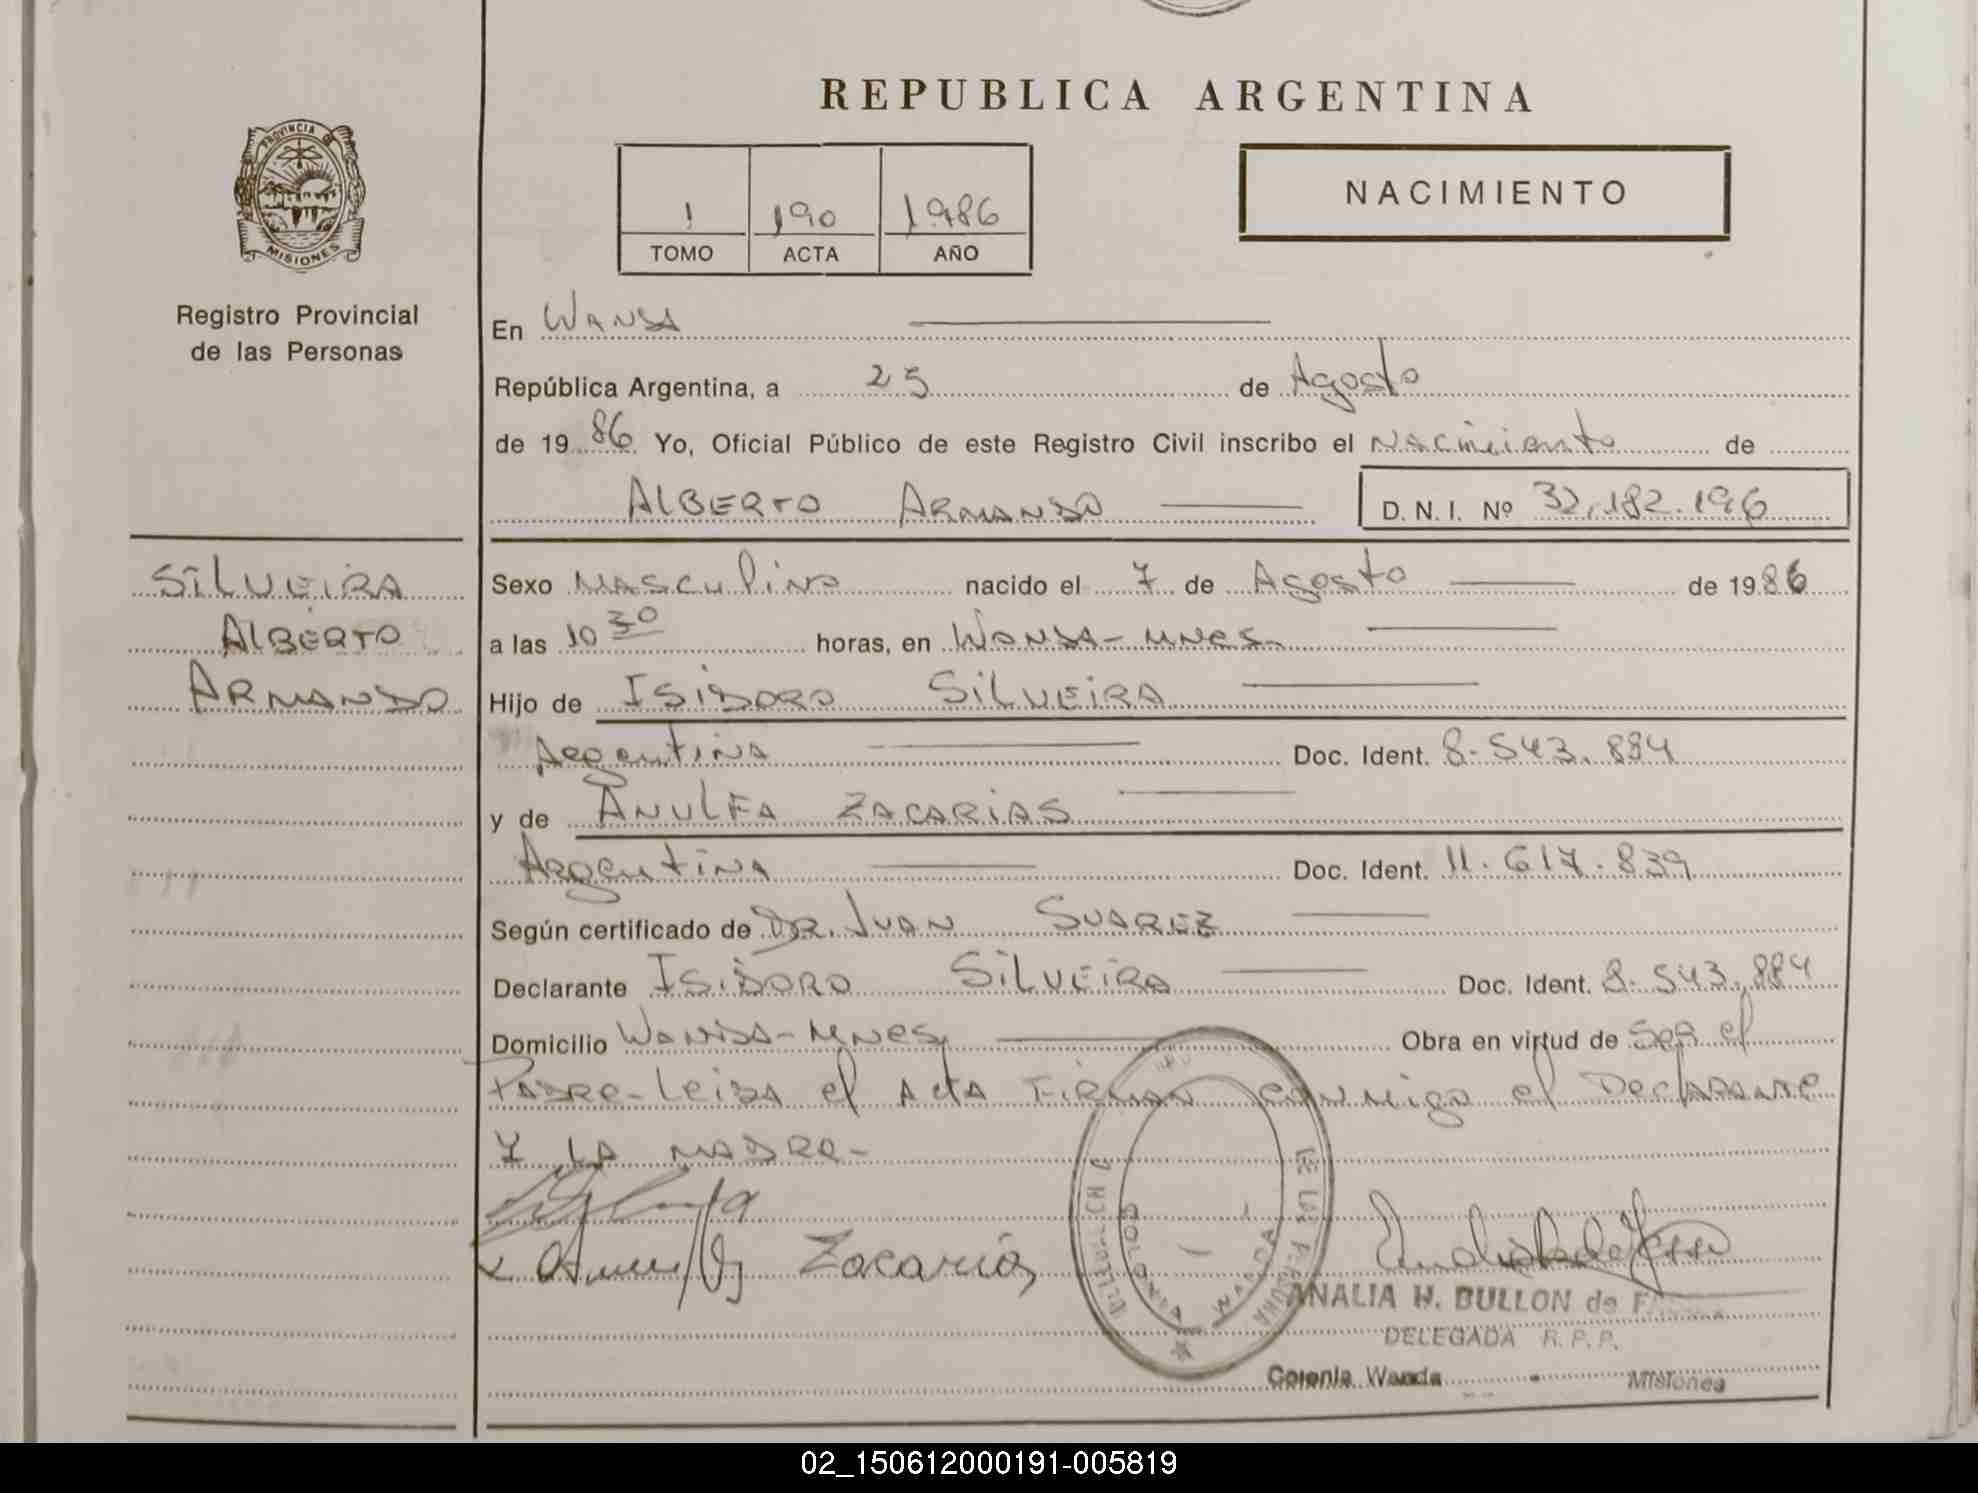 REPUBLICA ARGENTINA
PROVINCIA DE
MISIONES
Registro Provincial
de las Personas
1 190 1986
TOMO ACTA AÑO
NACIMIENTO
En Wanda
República Argentina, a 25 de Agosto
de 1986 Yo, Oficial Público de este Registro Civil inscribo el Nacimiento de
ALBERTO ARMANDO D.N.I. Nº 32.182.196
SILVEIRA
ALBERTO
ARMANDO
Sexo Masculino nacido el 7 de Agosto de 1986
a las 10 30 horas, en Wanda-Mnes.
Hijo de ISIDORO SILVEIRA
Argentina Doc. Ident. 8.543.884
y de ANULFA ZACARIAS
Argentina Doc. Ident. 11.617.839
Según certificado de DR. JUAN SUAREZ
Declarante ISIDORO SILVEIRA Doc. Ident. 8.543.884
Domicilio Wanda-Mnes, Obra en virtud de Ser el
Padre-Leida el Acta Firman conmigo el Declarante
Y LA MADRE-
Zacarias
DE LAS PERSONAS
WANDA
ANALIA H. BULLON de
DELEGADA R.P.P.
Colonia Wanda - Misiones
02_150612000191-005819